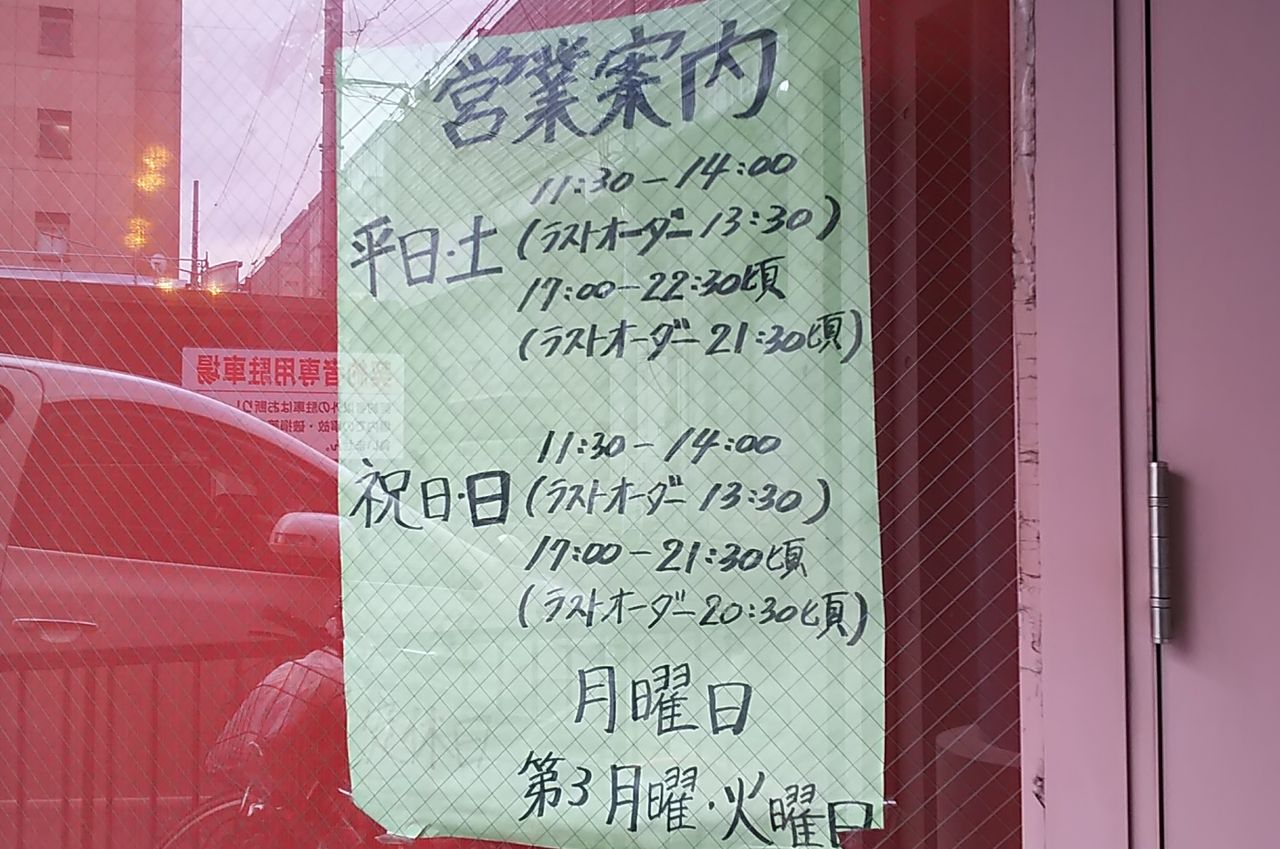 営業案内
平日・土
11:30-14:00
(ラストオーダー 13:30)
17:00-22:30頃
(ラストオーダー 21:30頃)
祝日・日
11:30-14:00
(ラストオーダー 13:30)
17:00-21:30頃
(ラストオーダー 20:30頃)
月曜日
第3月曜・火曜日
者専用駐車場